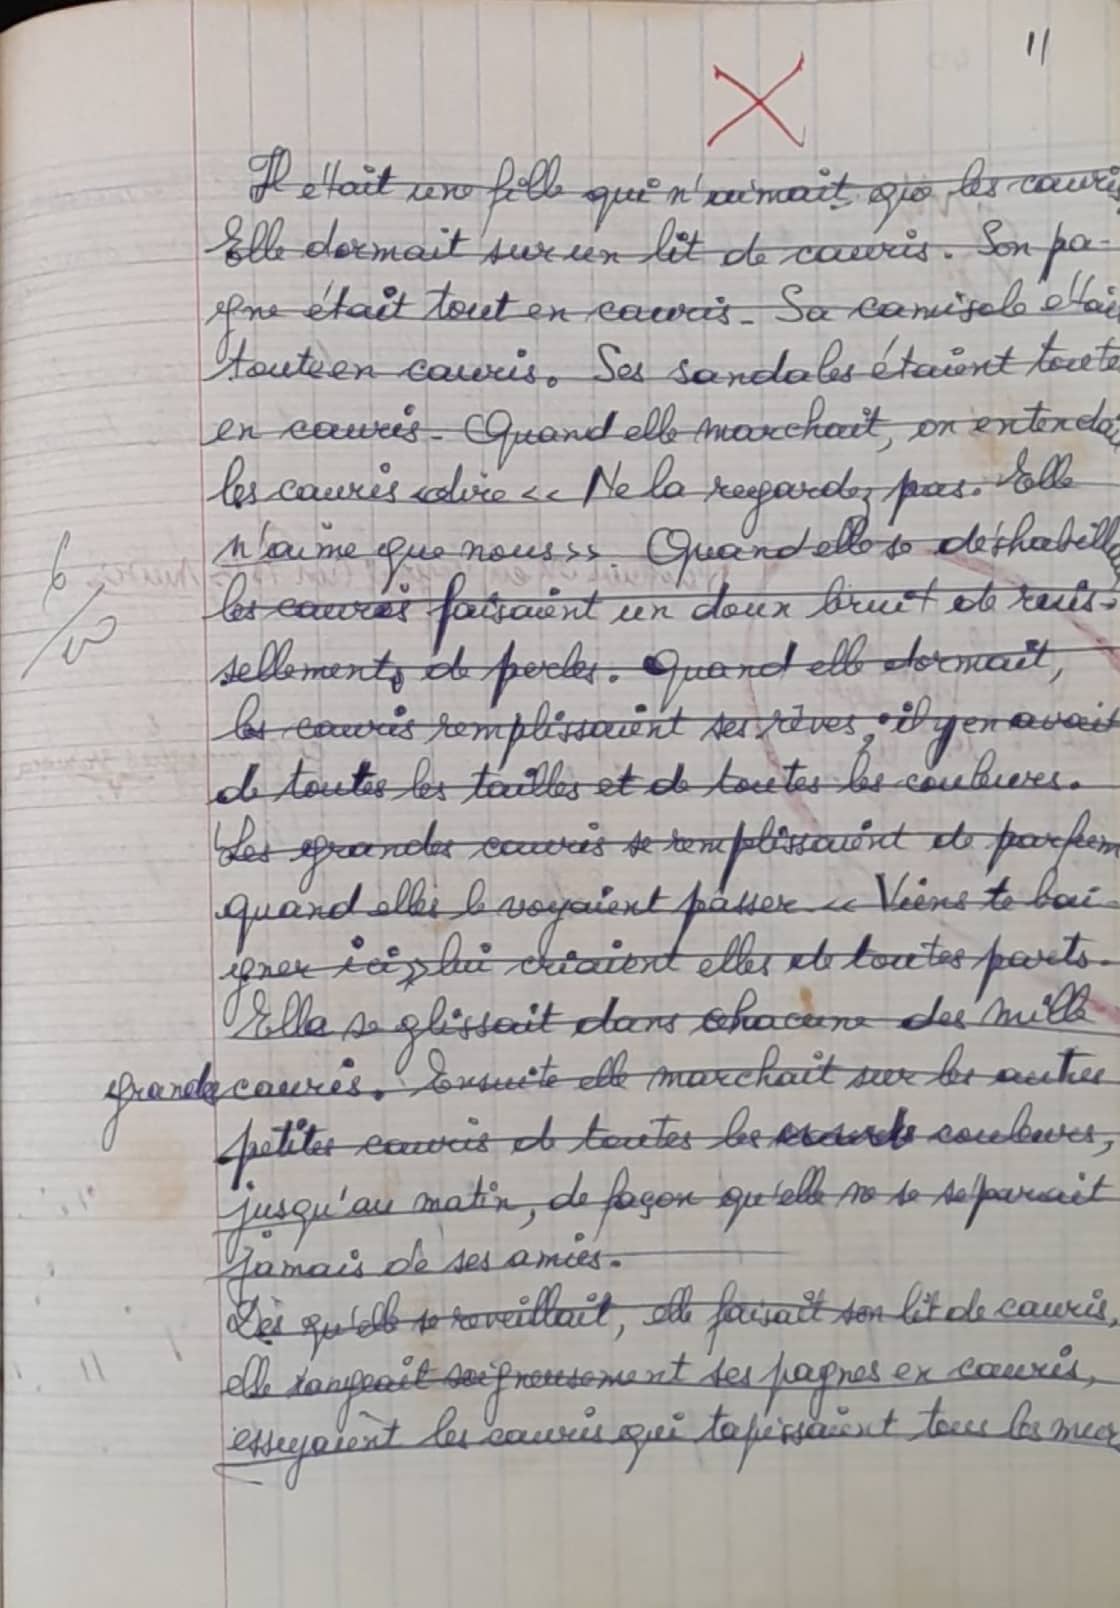 11
Il était une fille qui n'aimait que les cauris
Elle dormait sur un lit de cauris. Son pa-
gne était tout en cauris. Sa camisole étai
toute en cauris. Ses sandales étaient toute
en cauris. Quand elle marchait, on entendai
les cauris dire << Ne la regardez pas. Elle
n'aime que nous >>. Quand elle se déshabilla
les cauris faisaient un doux bruit de ruis-
sellements de perles. Quand elle dormait,
les cauris remplissaient ses rêves ; il y en avait
de toutes les tailles et de toutes les couleures.
Les grandes cauris se remplissaient de parfum
quand elles le voyaient passer << Viens te bai-
gner ici >> lui criaient elles de toutes parts.
Elle se glissait dans chacune des mille
grandes cauris. Ensuite elle marchait sur les autres
petites cauris de toutes les couleurs,
jusqu'au matin, de façon qu'elle ne se séparait
jamais de ses amies.
Dès qu'elle se reveillait, elle faisait son lit de cauris,
elle rangeait soigneusement ses pagnes en cauris,
essuyaient les cauris qui tapissaient tous les mur
6/10